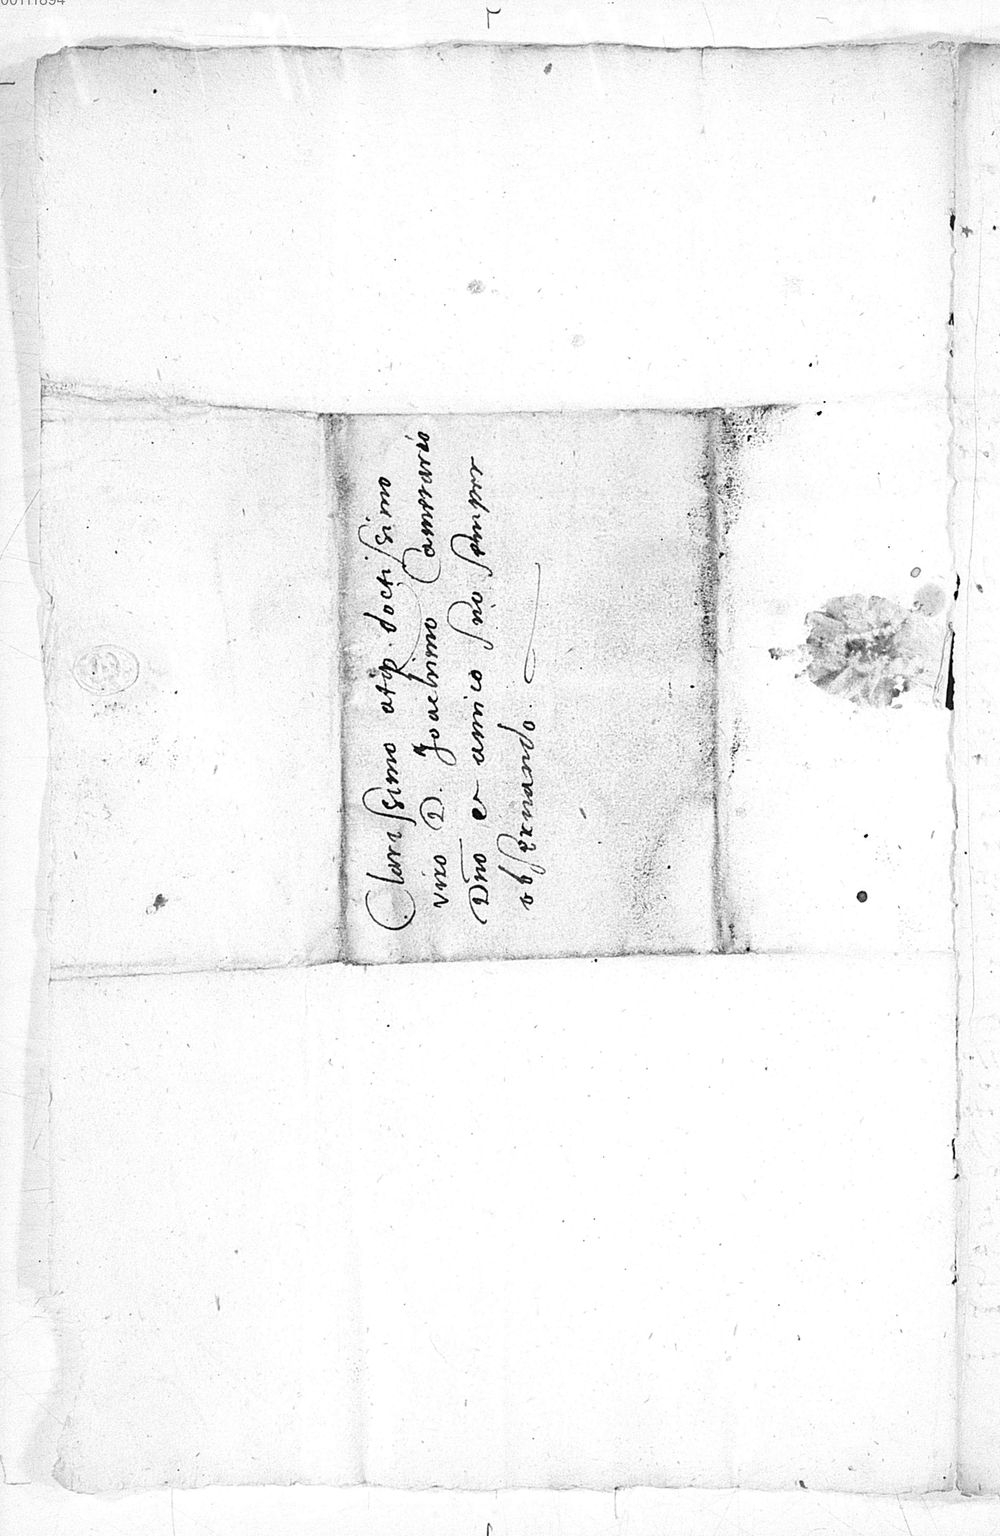 Clarissimo atq. doctissimo
viro D. Joachimo Camerario
Dño et amico suo semper
obseruando.